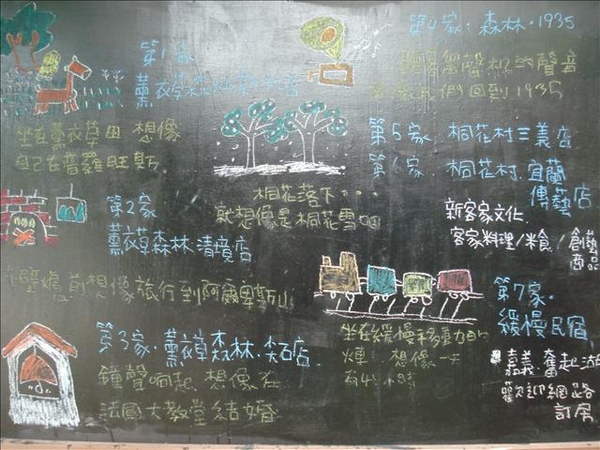 第1家
薰衣草森林
坐在薰衣草田 想像
自己在普羅旺斯
第2家
薰衣草森林清境店
壁爐前想像旅行到阿爾卑斯山
第3家．薰衣草森林．尖石店
鐘聲响起．想像在
法國大教堂結婚
桐花落下…
就想像是桐花雪吧
第4家．森林．1935
留聲机的聲音
我們回到1935
第5家 桐花村三義店
第6家 桐花村．宜蘭
傳藝店
新客家文化
客家料理/米食/創藝
商品
第7家．
緩慢民宿
嘉義．奮起湖
歡迎網路
訂房
坐在緩慢移動的
想像一